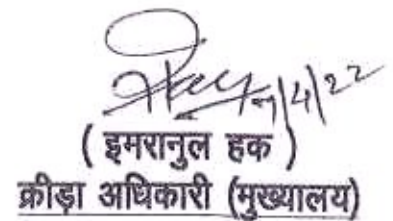 7/4/22
( इमरानुल हक )
क्रीड़ा अधिकारी (मुख्यालय)